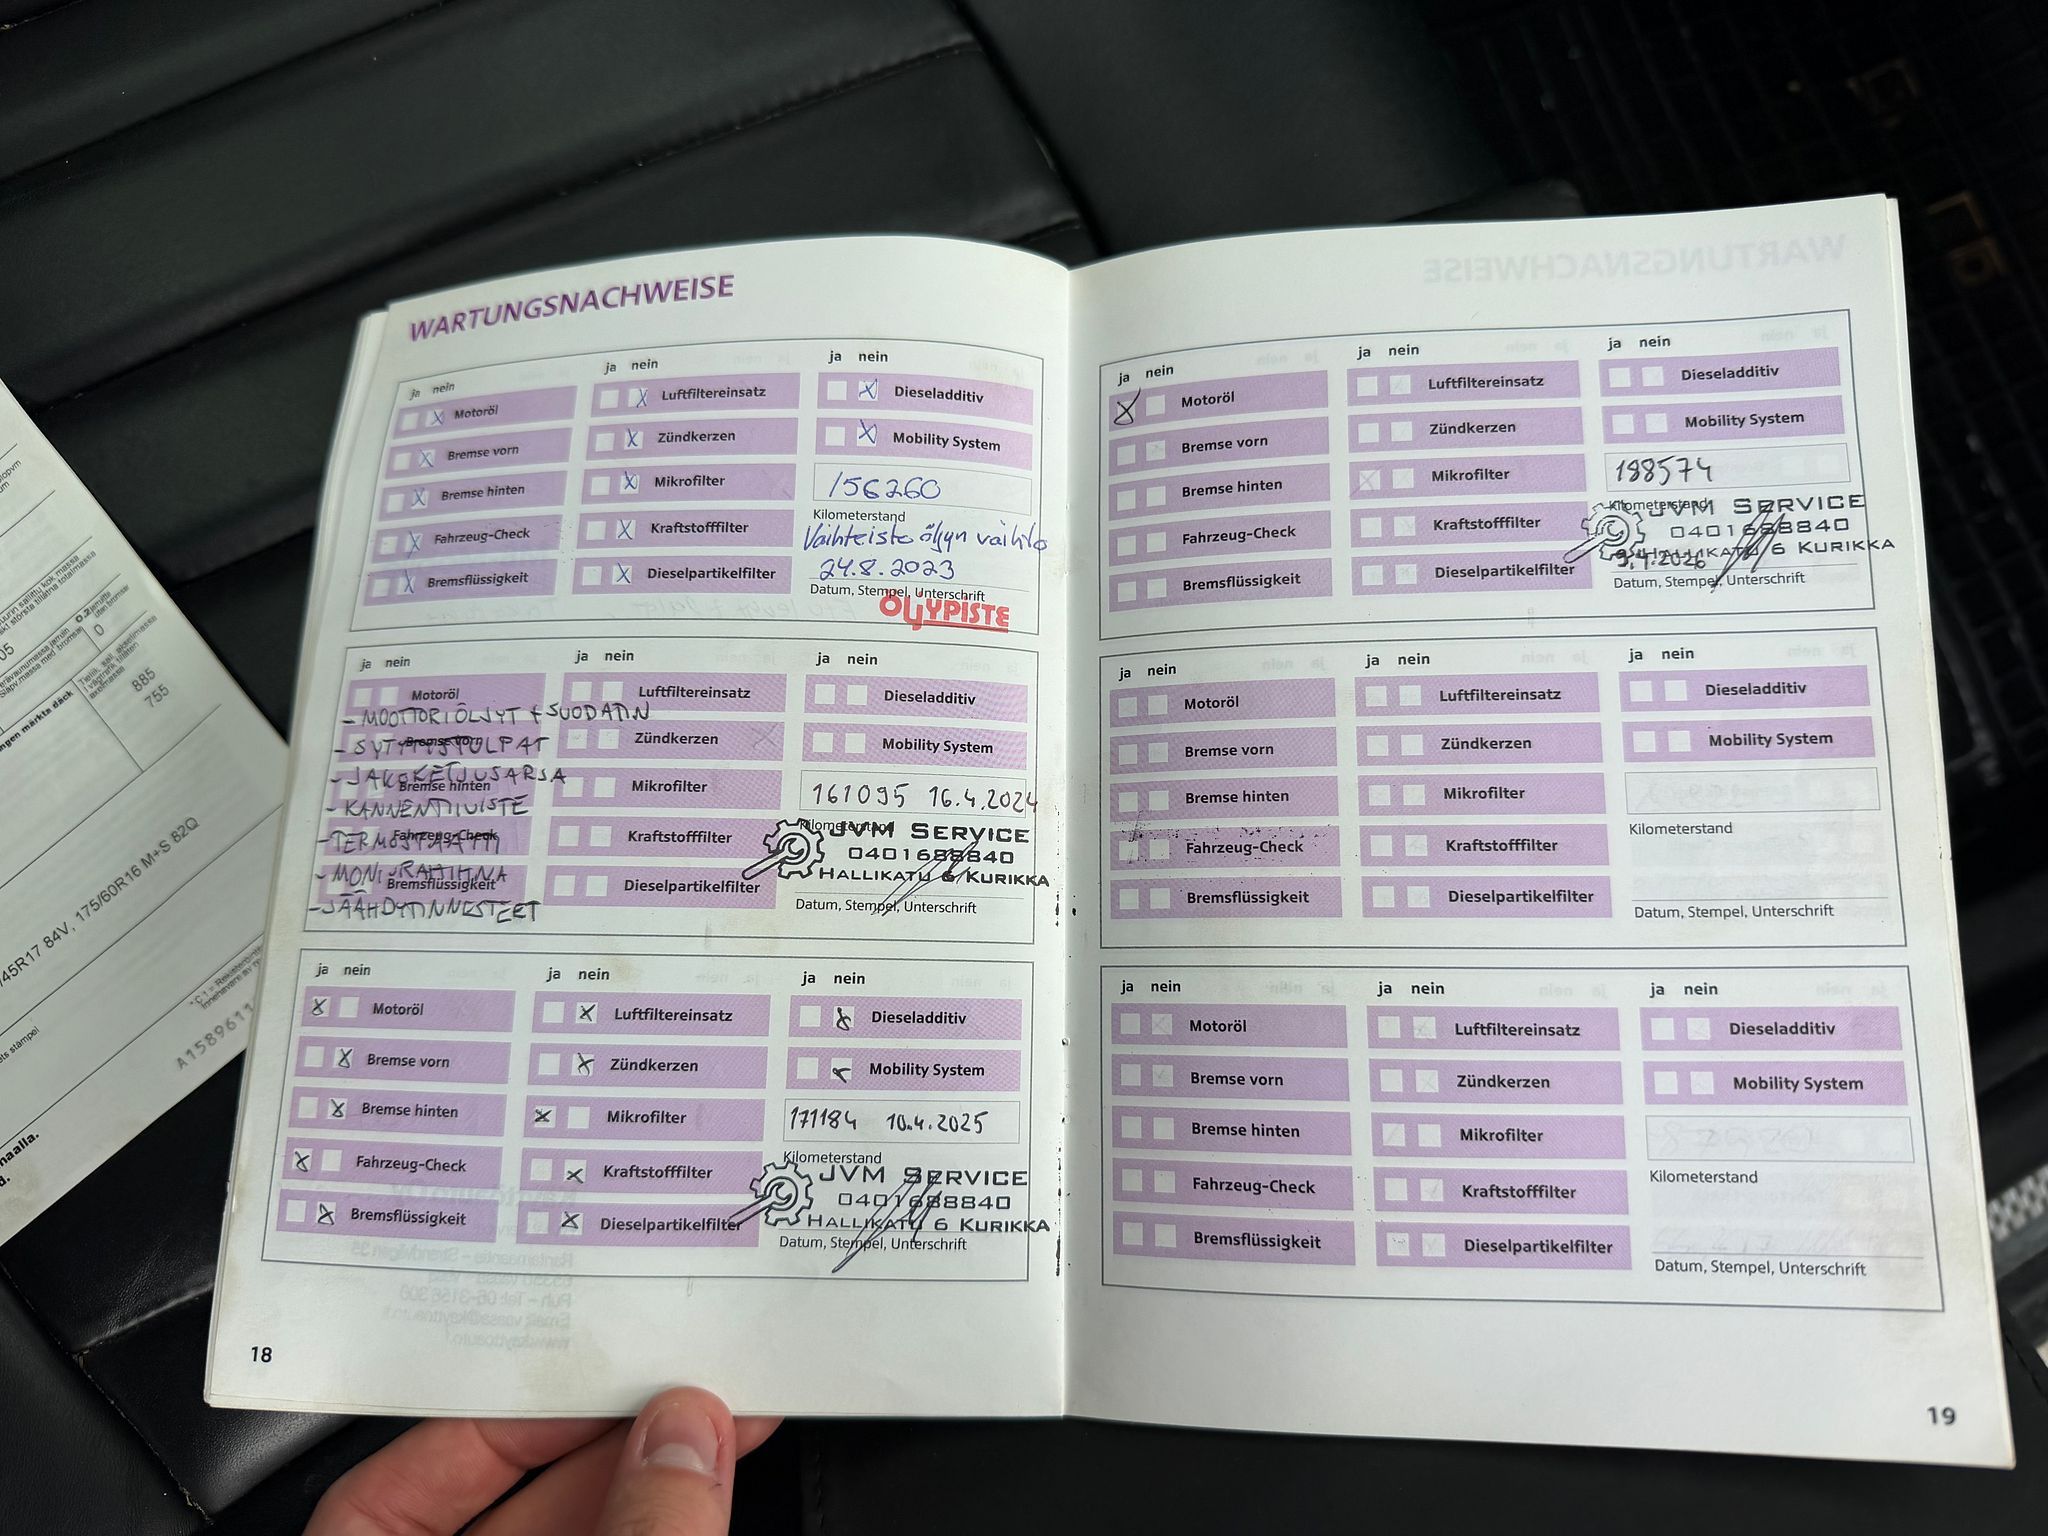 WARTUNGSNACHWEISE
ja nein
Motoröl
Bremse vorn
Bremse hinten
Fahrzeug-Check
Bremsflüssigkeit
ja nein
Luftfiltereinsatz
Zündkerzen
Mikrofilter
Kraftstofffilter
Dieselpartikelfilter
ja nein
Dieseladditiv
Mobility System
156260
Kilometerstand
Vaihteisto öljyn vaihto
24.8.2023
Datum, Stempel, Unterschrift
ÖLJYPISTE
ja nein
Motoröl
- MOOTTORIÖLJYT + SUODATIN
Bremse vorn
- SYTYTYSTULPAT
- JAKOKETJUSARSA
Bremse hinten
- KANNENTIIVISTE
Fahrzeug-Check
- TERMOSTAATTI
- MONIURAHIHNA
Bremsflüssigkeit
- JÄÄHDYTINNESTEET
ja nein
Luftfiltereinsatz
Zündkerzen
Mikrofilter
Kraftstofffilter
Dieselpartikelfilter
ja nein
Dieseladditiv
Mobility System
161095 16.4.2024
Kilometerstand
JVM SERVICE
0401688840
HALLIKATU 6 KURIKKA
Datum, Stempel, Unterschrift
ja nein
Motoröl
Bremse vorn
Bremse hinten
Fahrzeug-Check
Bremsflüssigkeit
ja nein
Luftfiltereinsatz
Zündkerzen
Mikrofilter
Kraftstofffilter
Dieselpartikelfilter
ja nein
Dieseladditiv
Mobility System
171184 10.4.2025
Kilometerstand
JVM SERVICE
0401688840
HALLIKATU 6 KURIKKA
Datum, Stempel, Unterschrift
18
ja nein
Motoröl
Bremse vorn
Bremse hinten
Fahrzeug-Check
Bremsflüssigkeit
ja nein
Luftfiltereinsatz
Zündkerzen
Mikrofilter
Kraftstofffilter
Dieselpartikelfilter
ja nein
Dieseladditiv
Mobility System
188574
Kilometerstand
JVM SERVICE
0401688840
HALLIKATU 6 KURIKKA
9.4.2026
Datum, Stempel, Unterschrift
ja nein
Motoröl
Bremse vorn
Bremse hinten
Fahrzeug-Check
Bremsflüssigkeit
ja nein
Luftfiltereinsatz
Zündkerzen
Mikrofilter
Kraftstofffilter
Dieselpartikelfilter
ja nein
Dieseladditiv
Mobility System
Kilometerstand
Datum, Stempel, Unterschrift
ja nein
Motoröl
Bremse vorn
Bremse hinten
Fahrzeug-Check
Bremsflüssigkeit
ja nein
Luftfiltereinsatz
Zündkerzen
Mikrofilter
Kraftstofffilter
Dieselpartikelfilter
ja nein
Dieseladditiv
Mobility System
Kilometerstand
Datum, Stempel, Unterschrift
19
885
755
45R17 84V, 175/60R16 M+S 82Q
A1589611